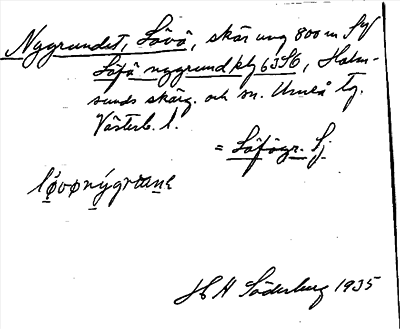 Nygrundet, Lövö, skär ung 800 m SV
Löfö nygrund kbl 63 S6, Holm-
sunds skärg. och sn. Umeå tg.
Västerb. l.
= Löfögr. Sj
løvønýgrœnɛ
H A Söderberg 1935